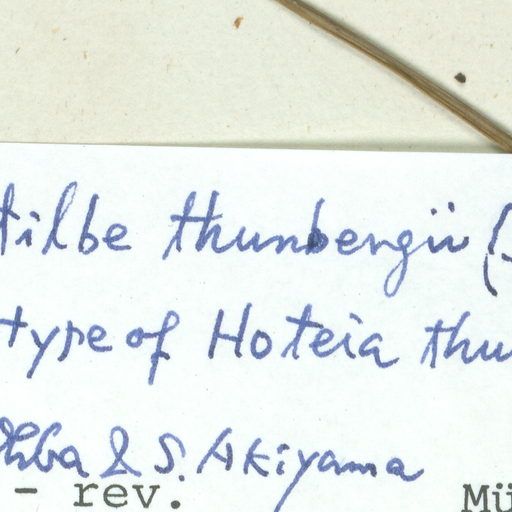 tilbe thunbergii (
type of Hoteia thu
hba & S. Akiyama
- rev. Mü